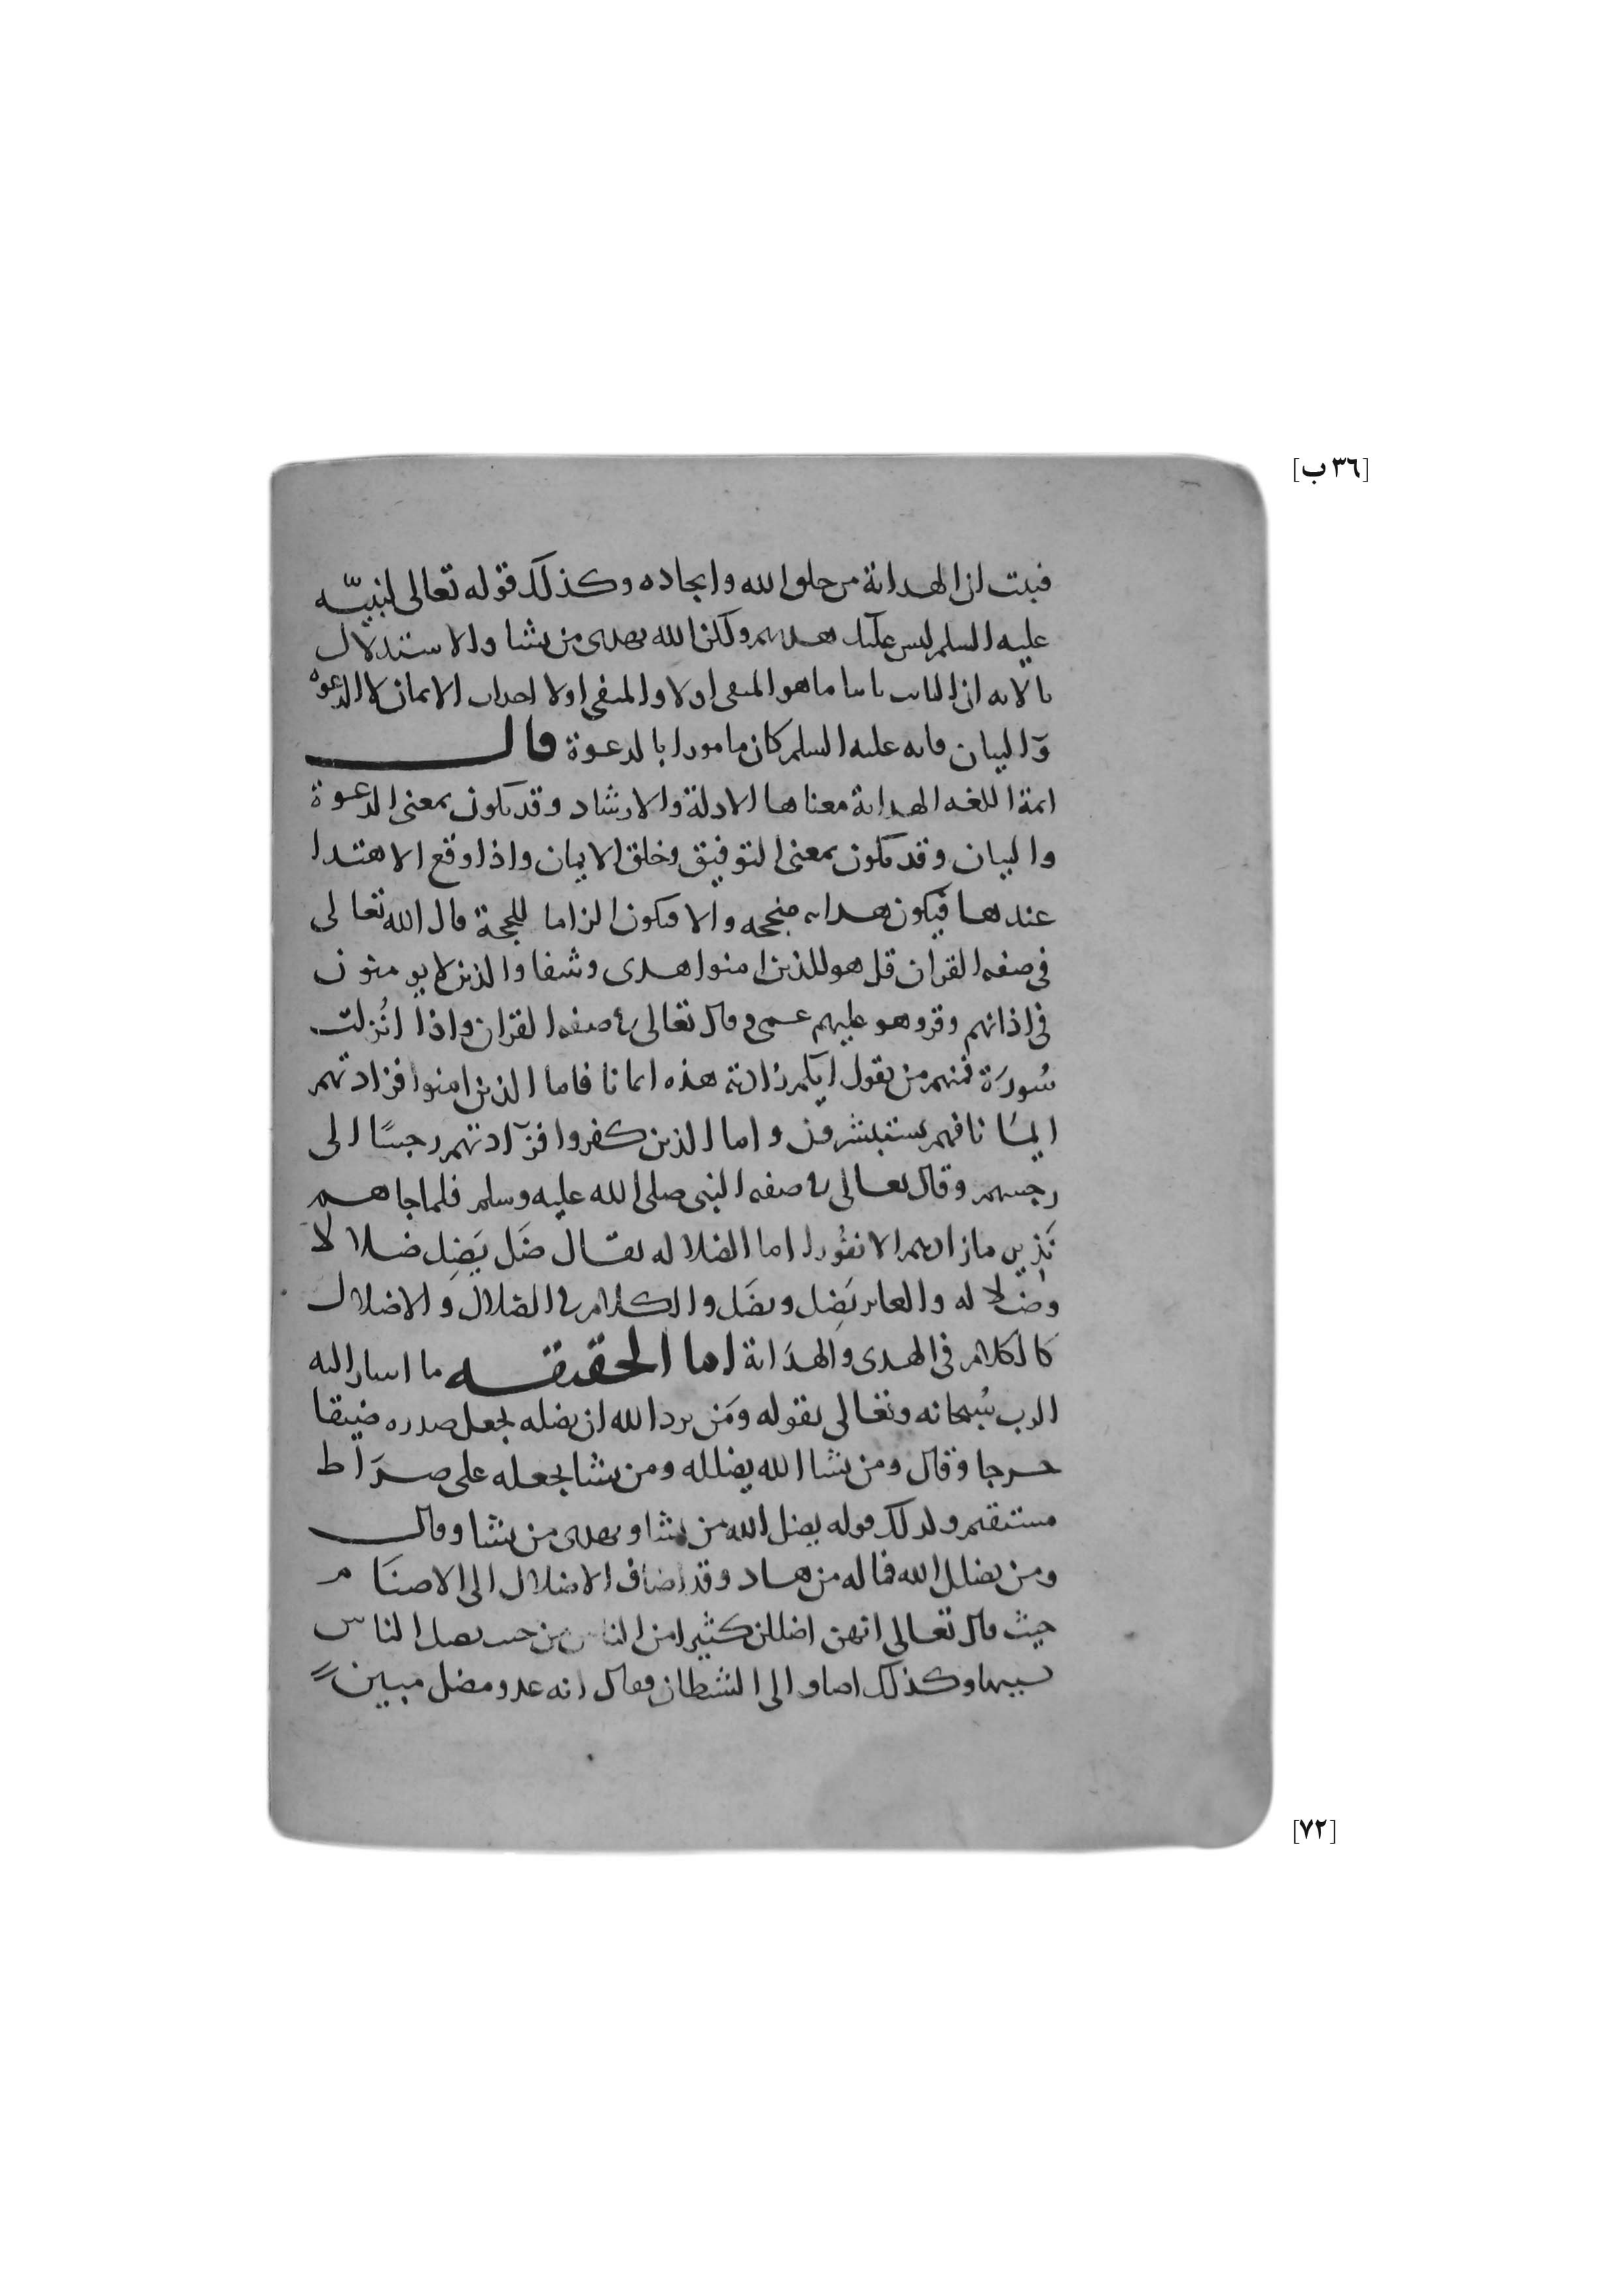 [٣٦ ب]
فثبت ان الهداية من خلق الله وايجاده وكذلك قوله تعالى لنبيّه
عليه السلم ليس عليك هديهم ولكن الله يهدى من يشا والاستدلال
بالايه ان الثابت ثانيا ما هو المنفى اولا والمنفى اولا احداث الايمان لا الدعوه
والبيان فانه عليه السلم كان مامورا بالدعوة قال
ائمة اللغه الهداية معناها الادلة والارشاد وقد يكون بمعنى الدعوة
والبيان وقد يكون بمعنى التوفيق وخلق الايمان واذا وقع الاهتدا
عندها فيكون هدايه منجحه والا فيكون الزاما للحجة قال الله تعالى
فى صفه القران قل هو للذين امنوا هدى وشفا والذين لا يومنون
فى اذانهم وقر وهو عليهم عمى وقال تعالى فى صفه القران واذا انُزلت
سُورَة فمنهم من يقول ايكم زادته هذه ايمانا فاما الذين امنوا فزادتهم
ايمَانا فهم يستبشرون واما الذين كفروا فزادتهم رجسًا الى
رجسهم وقال تعالى فى صفه النبى صلى الله عليه وسلم فلما جاهم
نَذير ما زادهم الا نفُورا اما الضلاله يقال ضَل يَضِل ضلالا
وضلاله والعابر يَضِل ويضَل والكلام فى الضلال والاضلال
كالكلام فى الهدى والهدَاية اما الحقيقه ما اشار اليه
الرب سُبحانه وتعالى بقوله ومَن يرد الله ان يضله يجعل صدره ضيقا
حرجا وقال ومن يشا الله يضلله ومن يشا يجعله على صرَاط
مستقيم ولذلك قوله يضل الله من يشا ويهدى من يشا وقال
ومن يضلل الله فما له من هاد وقد اضاف الاضلال الى الاصنَام
حيث قال تعالى انهن اضللن كثيرا من الناس من حيث يضل الناس
بسببها وكذلك اضاف الى الشيطان فقال انه عدو مضل مبين
[٧٢]